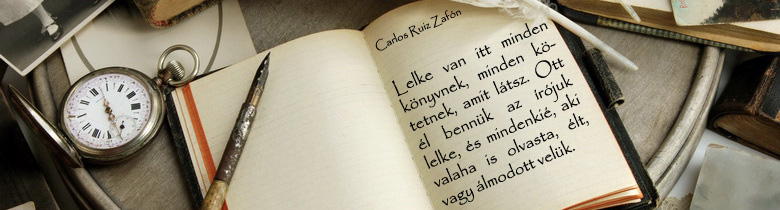 Carlos Ruiz Zafón
Lelke van itt minden
könyvnek, minden kö-
tetnek, amit látsz. Ott
él bennük az írójuk
lelke, és mindenkié, aki
valaha is olvasta, élt,
vagy álmodott velük.